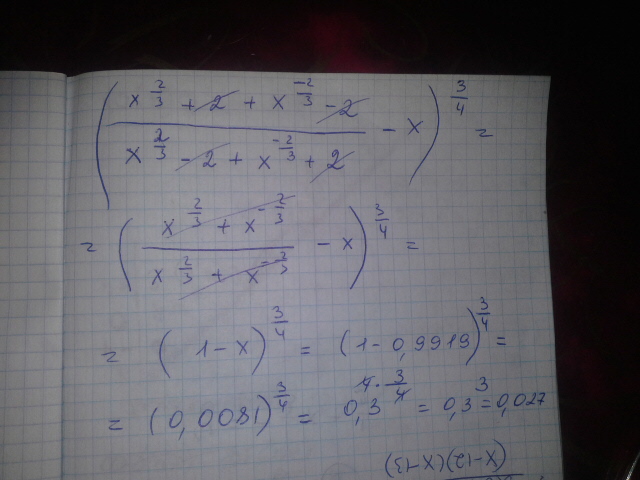 (x^{2/3} + 2 + x^{-2/3} - 2 / x^{2/3} - 2 + x^{-2/3} + 2 - x)^{3/4} =
= (x^{2/3} + x^{-2/3} / x^{2/3} + x^{-2/3} - x)^{3/4} =
= (1-x)^{3/4} = (1-0,9919)^{3/4} =
= (0,0081)^{3/4} = 0,3^{4·3/4} = 0,3^3 = 0,027
(x-12)(x-13)